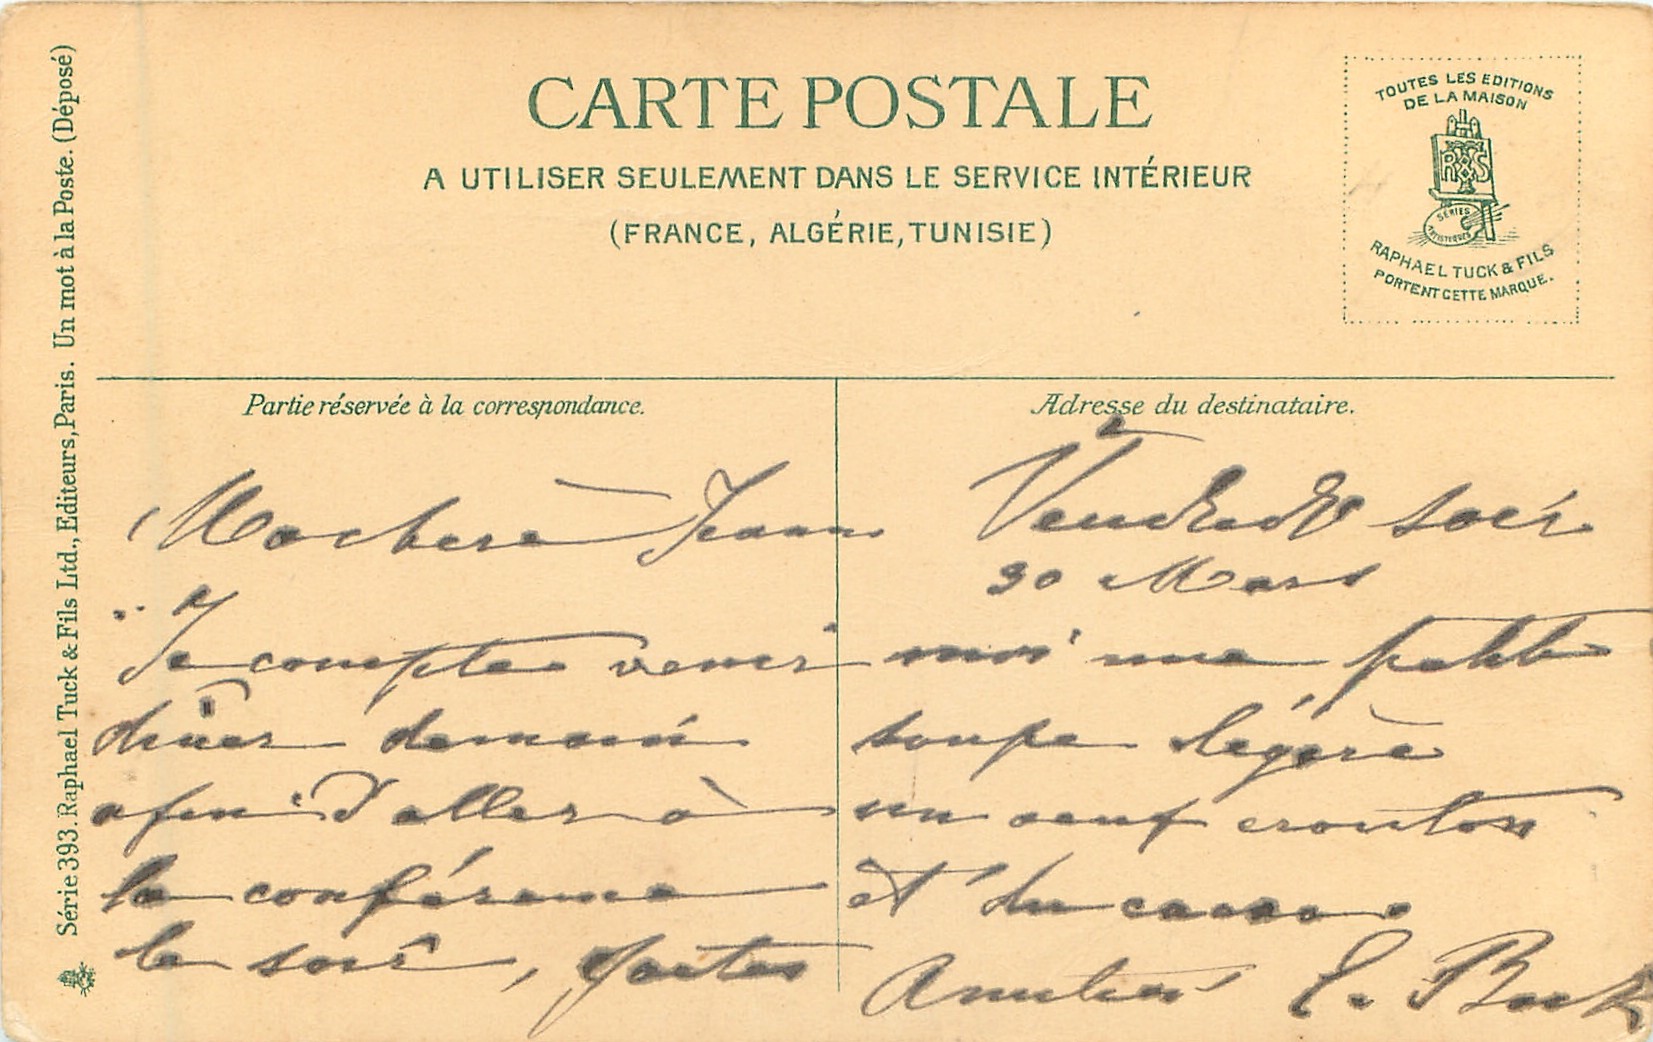 CARTE POSTALE
A UTILISER SEULEMENT DANS LE SERVICE INTÉRIEUR
(FRANCE, ALGÉRIE, TUNISIE)
TOUTES LES EDITIONS
DE LA MAISON
SÉRIES
ARTISTIQUES
RAPHAEL TUCK & FILS
PORTENT CETTE MARQUE.
Série 393. Raphael Tuck & Fils Ltd., Editeurs, Paris. Un mot à la Poste. (Déposé)
Partie réservée à la correspondance.
Ma chère Jeanne
Je compte venir
dîner demain
afin d'aller à
la conférence
le soir, faites
Adresse du destinataire.
Vendredi soir
30 Mars
moi une petite
soupe légère
un oeuf crouton
et du cacao
Amitiés E.